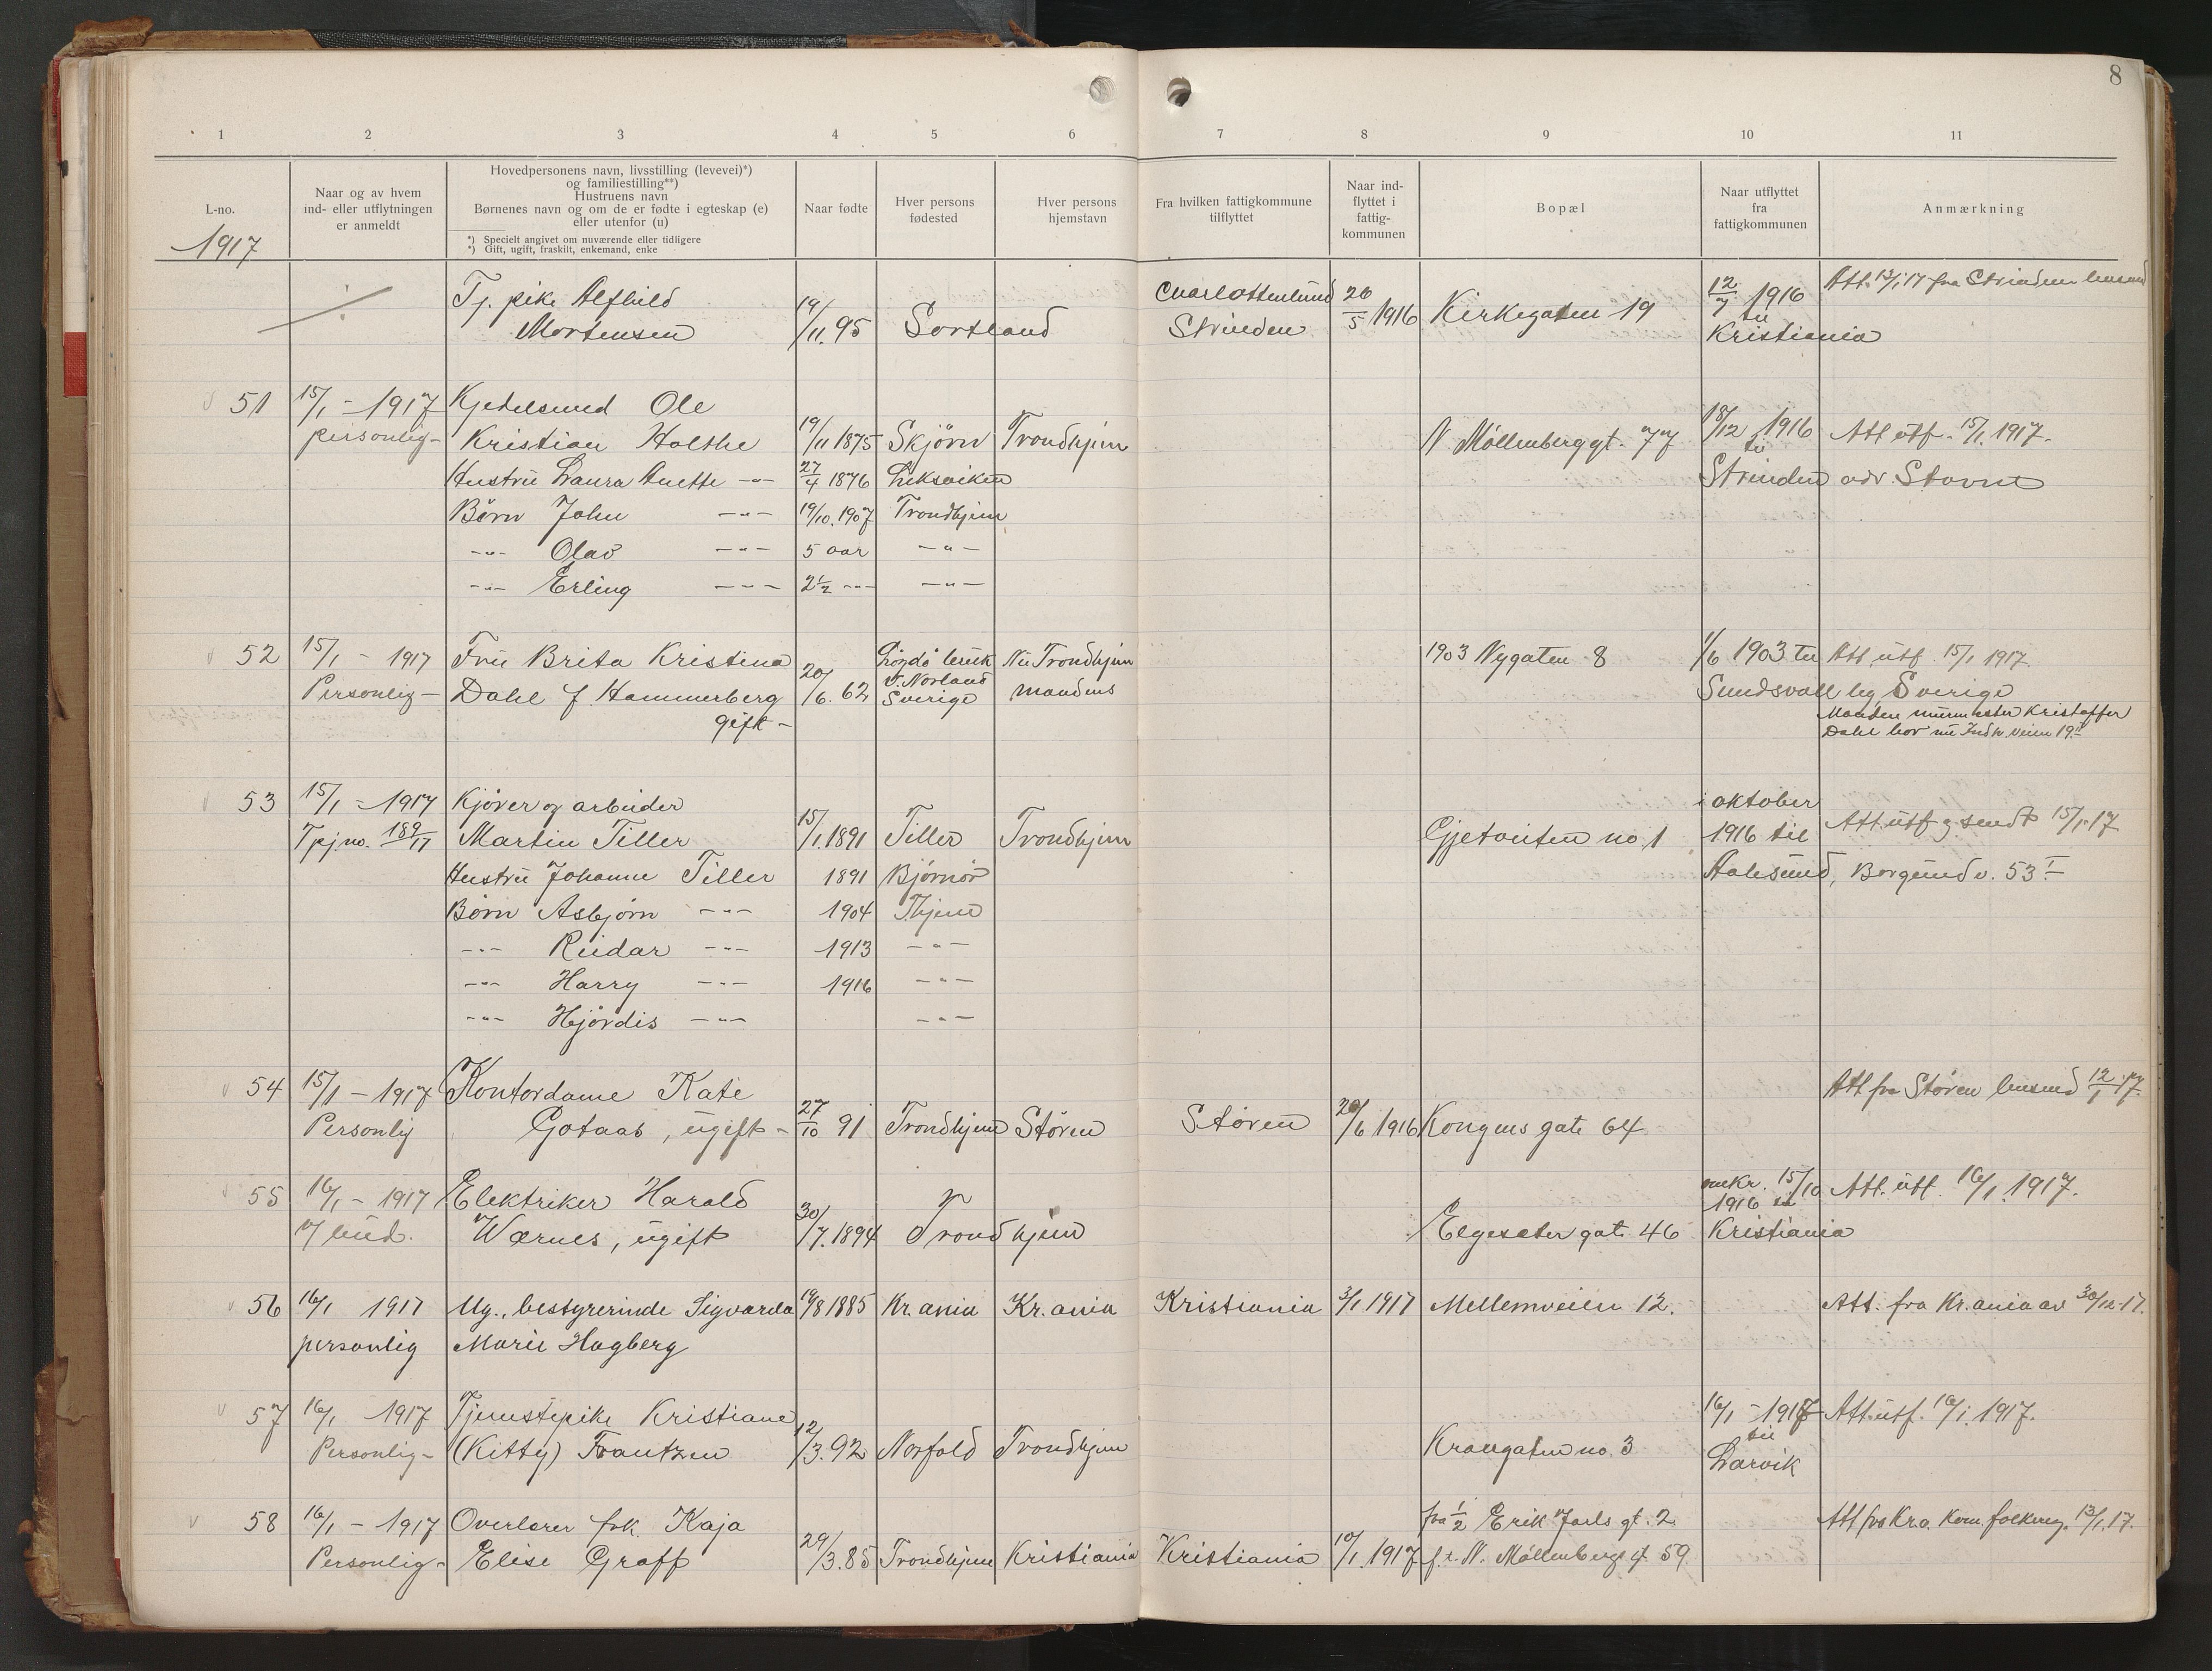 8
1 2 3 4 5 6 7 8 9 10 11
L-no.
1917
Naar og av hvem
ind- eller utflytningen
er anmeldt
Hovedpersonens navn, livsstilling (levevei)*)
og familiestilling**)
Hustruens navn
Børnenes navn og om de er fødte i egteskap (e)
eller utenfor (u)
*) Specielt angivet om nuværende eller tidligere
*) Gift, ugift, fraskilt, enkemand, enke
Naar fødte
Hver persons
fødested
Hver persons
hjemstavn
Fra hvilken fattigkommune
tilflyttet
Naar ind-
flyttet i
fattig-
kommunen
Bopæl
Naar utflyttet
fra
fattigkommunen
Anmærkning
Tj. pike Alfhild Charlottenlund 26 12/7 1916 Att. 13/1 17 fra Strinden
Mortensen 19/11. 95 Sortland Strinden 5 1916 Kirkegaten 19 til
Kristiania
51 15/1 - 1917 Kjedelsmed Ole
personlig- Kristian Holthe 19/11 1875 Skjörn Trondhjem N Möllenberggt. 77 18/12 1916 Att utf. 15/1. 1917.
til
Hustru Laura Anette -"- 27/4 1876 Leksviken Strinden adr. Stavne
Börn John -"- 19/10. 1907 Trondhjem
-"- Olav -"- 5 aar -"-
-"- Erling -"- 2½ -"- -"-
52 15/1 - 1917 Fru Brita Kristina Nu Trondhjem 1903 Nygaten 8 1/6 1903 til Att utf 15/1 1917.
Personlig- Dahl f. Hammerberg 20/6. 62 V. Norland mandens Sundsvall Sverige
gift - Sverige Manden murmester Kristoffer
Dahl bor nu Indh. veien 19
53 15/1 - 1917 Kjörer og arbeider i oktober
Tpj no. 189/17 Martin Tiller 15/1. 1891 Tiller Trondhjem Gjetveiten no 1 1916 til Att. utf g. sendt 15/1-17
Hustru Johanne Tiller 1891 Björnör Aalesund, Borgundv. 53 I
Börn Asbjørn -"- 1904 Thjem
-"- Reidar -"- 1913 -"-
-"- Harry -"- 1916 -"-
-"- Hjördis -"- -"-
54 15/1 - 1917 Kontordame Kate Att fra Støren 12/1 17.
Personlig Gotaas, ugift- 27/10 91 Trondhjem Støren Støren 20/6 1916 Kongens gate 64
55 16/1 - 1917 Elektriker Harald omkr. 15/10 Att. utf. 16/1. 1917.
1916 til
Wærnes, ugift 30/7. 1894 Trondhjem Elgesæter gate 46 Kristiania
56 16/1 1917 Ug., bestyrerinde Sigvarda 19/8 1885 Kr.ania Kr.ania Kristiania 3/1 1917 Mellemveien 12. Att. fra Kr.ania av 30/12-17.
personlig Marie Hagberg
57 16/1 1917 Tjenestepike Kristiane 16/1 - 1917 Att. utf. 16/1. 1917.
Personlig- (Kitty) Frantzen 12/3. 92 Norfold Trondhjem Krangaten no. 3 til
Larvik
58 16/1 - 1917 Overlærer frk. Kaja fra 1/2 Erik Jarls gt. 2. Att fra Kra. Kom. folkereg. 13/1. 17.
Personlig- Elise Graff 29/3. 85 Trondhjem Kristiania Kristiania 10/1. 1917 f. t. N. Möllenbergs gt. 59.